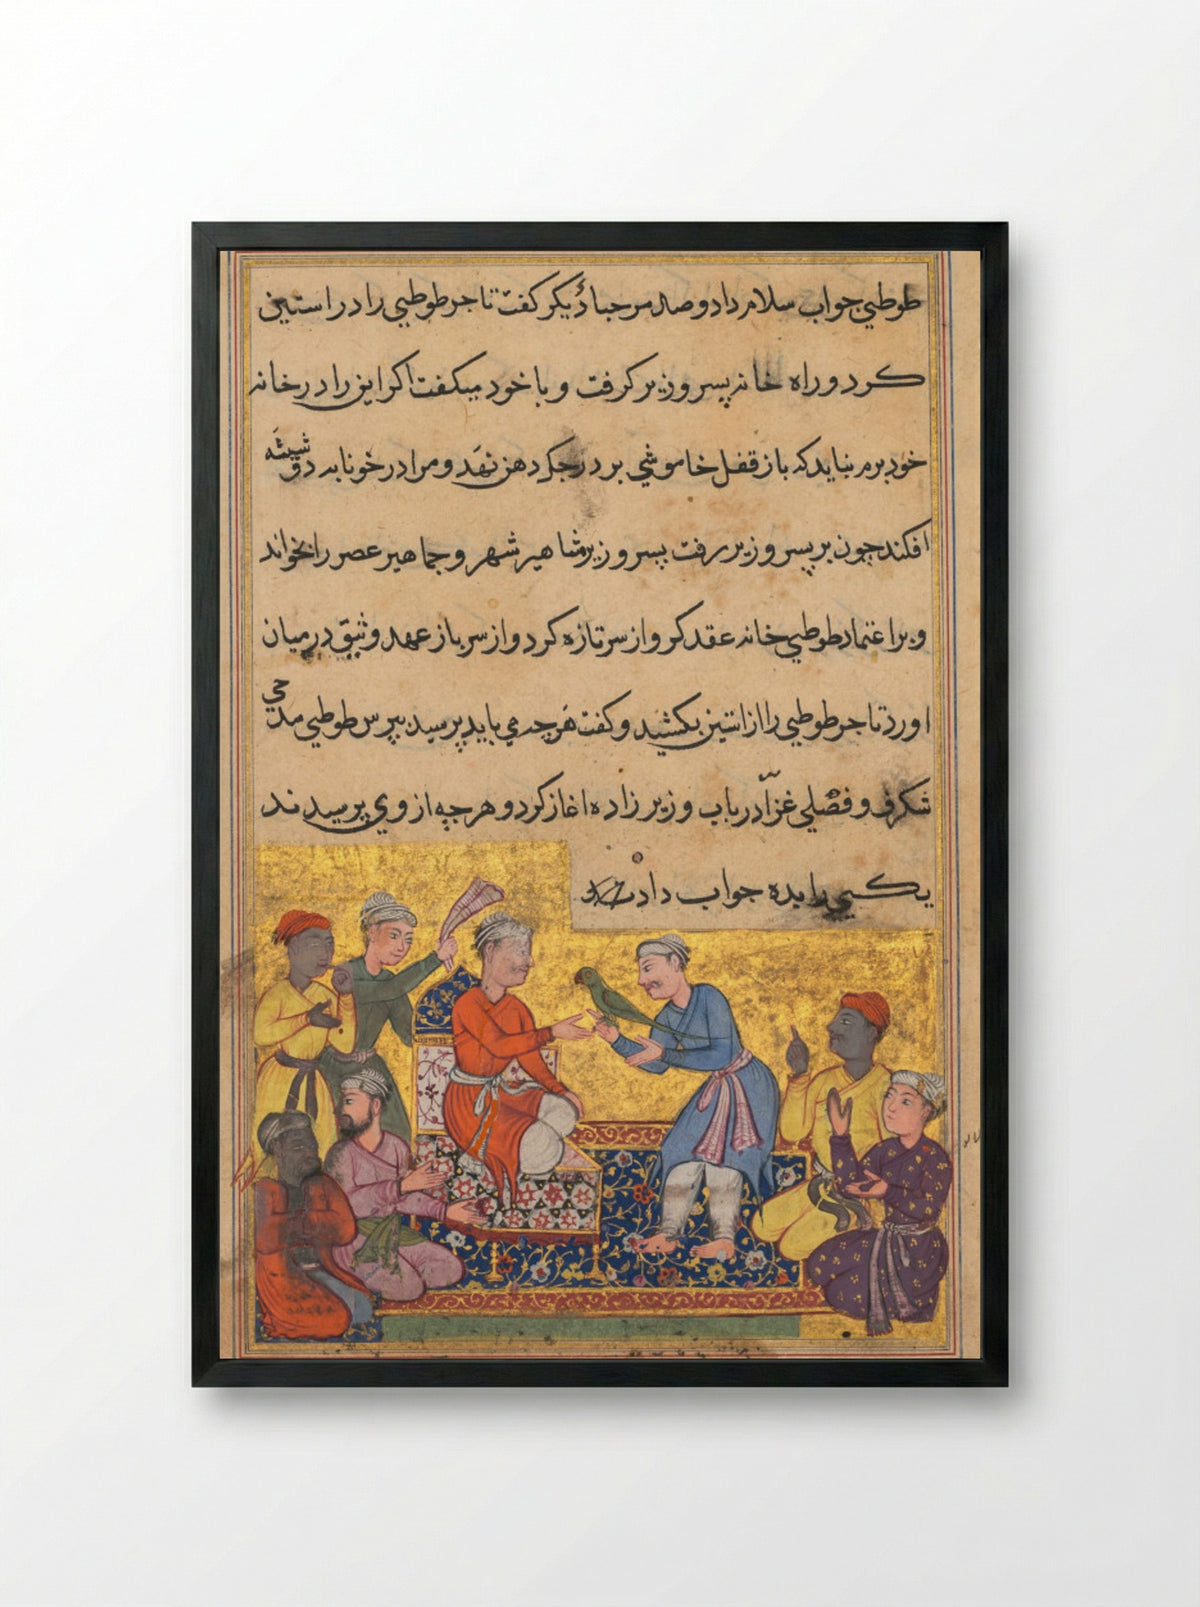 طوطی جواب سلام داد و صد مرحبا دیکر کفت تاجر طوطی را در استین
کرد و راه خانه پسر وزیر کرفت و با خود میکفت اکر این را در خانه
خود برم نباید که باز قفل خاموشی بر درجک دهن نهد و مرا در خونابه
افکند چون بر پسر وزیر رفت پسر وزیر مشاهیر شهر و جماهیر عصر را بخواند
و بر اعتماد طوطی خانه عقد کرو از سر تازه کرد و از سر باز عهد وثیق در میان
اورد تاجر طوطی را از استین بکشید و کفت هرچه می باید پرسید بپرس طوطی مدحی
شکرف و فصلی غرا در باب وزیر زاده اغاز کرد و هرچه از وی پرسیدند
یکی را یده جواب داد